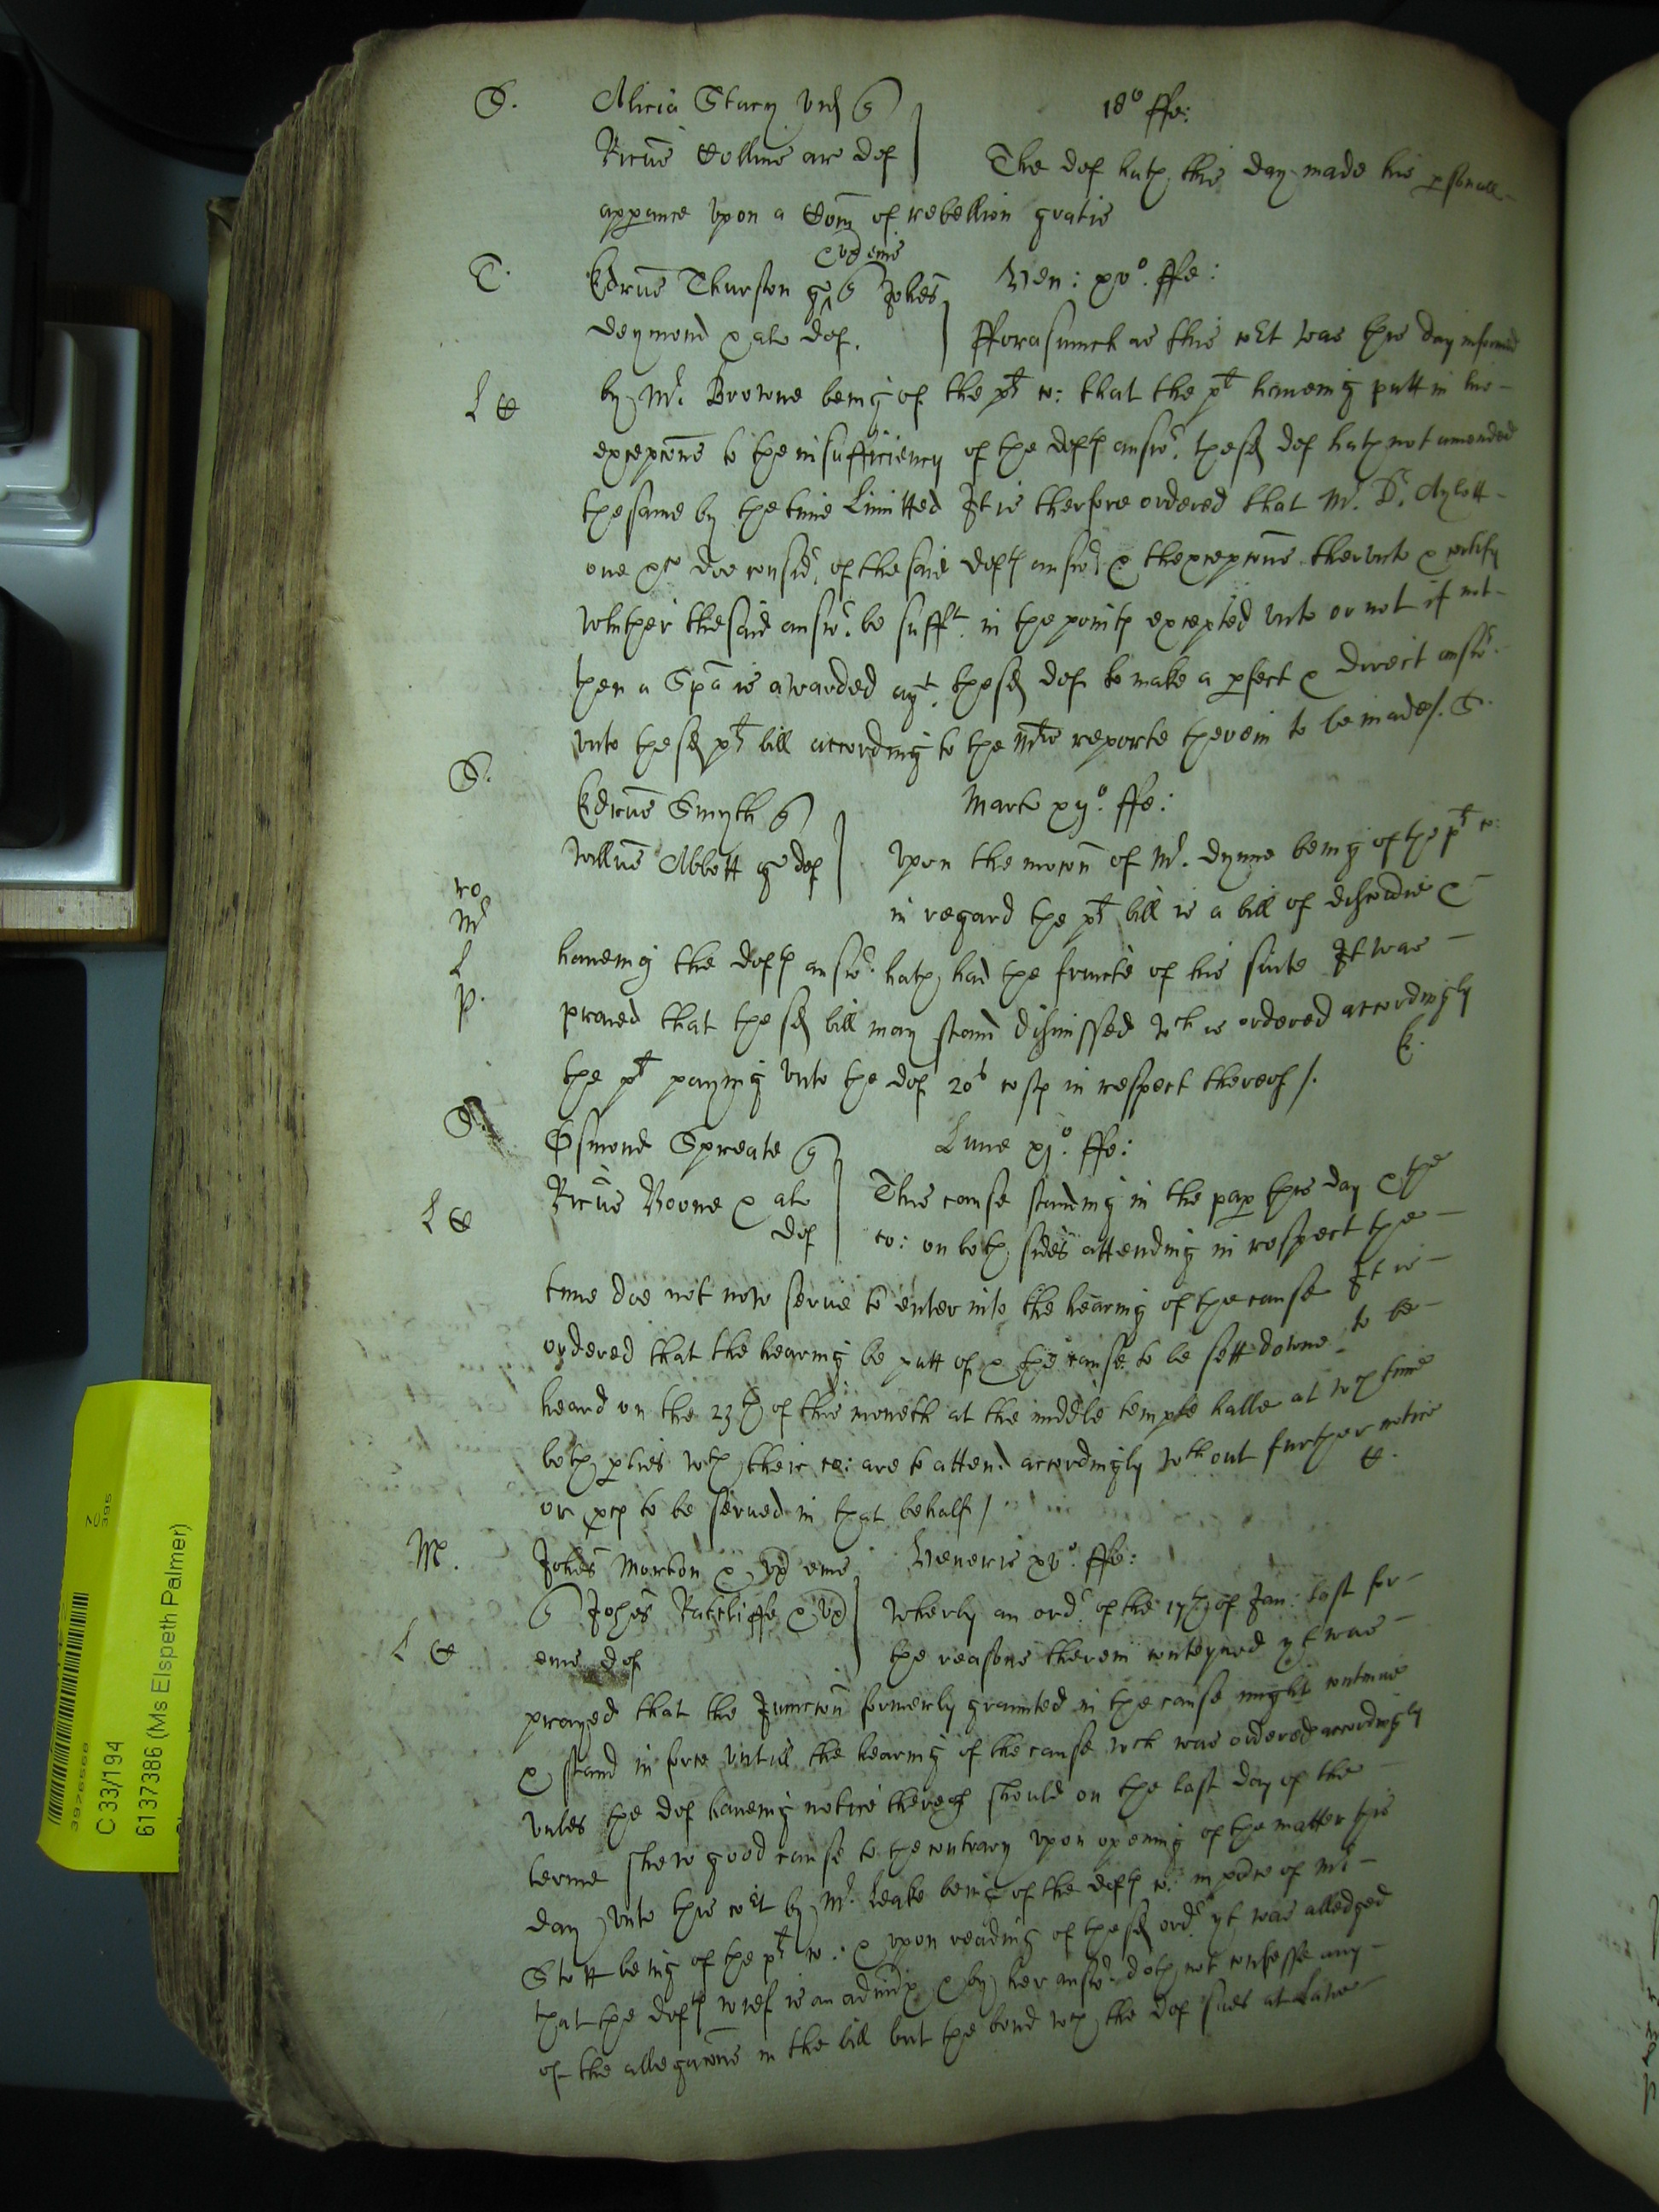 S. Alicia Stacy vid q 18° ffe:
Ricus Collins ar def The def hath this day made his psonall
appance vpon a Com of rebellion gratis
T. Edrus Thurston gen & vx eius q Johes Ven: xv°. ffe:
Deymond & als def. Fforasmuch as this co^rt was this day informed
L C by M^r. Browne being of the p^ts co: that the p^t haueing putt in his
excepcons to the insufficiency of the defts answ^r. the sd def hath not amended
the same by the time Limitted It is therfore ordered that M^r. D^r. Aylett
one &c doe consid^r. of the said defts answ^r. & thexcepcons thervnto & certify
whether the said answ^r. be suff^t. in the points excepted vnto or not if not
then a Spa is awarded ag^t. the sd def to make a pfect & direct answ^r.
vnto the sd p^ts bill according to the M^rs reporte therein to be made/. S.
S. Edrus Smyth q Marts xij°. ffe:
Willus Abbott gen def Vpon the mocon of M^r. Dynne being of the p^ts co:
ro in regard the p^ts bill is a bill of discovie &
M^r
L haueing the defts answ^r. hath had the fruicte of his suite It was
p. praied that the sd bill may stand dismissed w^ch is ordered accordingly
the p^t paying vnto the def 20^s costs in respect thereof /. E.
S. Osmond Spreate q Lune xj°. ffe:
Ricus Boone & als This cause standing in the pap this day & the
L C def co: on both sides attending in respect the
time doe not now serue to enter into the hearing of the cause It is
ordered that the hearing be putt of & the cause to be sett downe to be
heard on the 23th of this moneth at the middle temple halle at w^ch time
both pties w^th their co: are to attend accordingly w^thout further notice
or pces to be serued in that behalf / C.
M. Johes Morton & vx eius Veneris xv°. ffe:
q Johes Ratcliffe & vx Wherby an ord^r. of the 17th of Jan: last for
L C eius def the reasons therein conteyned yt was
prayed that the Juncton formerly graunted in the cause might continue
& stand in force vntill the hearing of the cause w^ch was ordered accordingly
vnles the def haueing notice thereof should on the last day of the
terme shew good cause to the contrary vpon opening of the matter this
day vnto this co^rt by M^r. Leake being of the defts co: in pnce of M^r.
Stott being of the p^ts co: & vpon reading of the sd ord^r. yt was alledged
that the defts wief is an admx & by her answ^r. doth not confesse any
of the allegacons in the bill but the bond w^ch the def sues at Lawe
C 33/194
6137386 (Ms Elspeth Palmer)